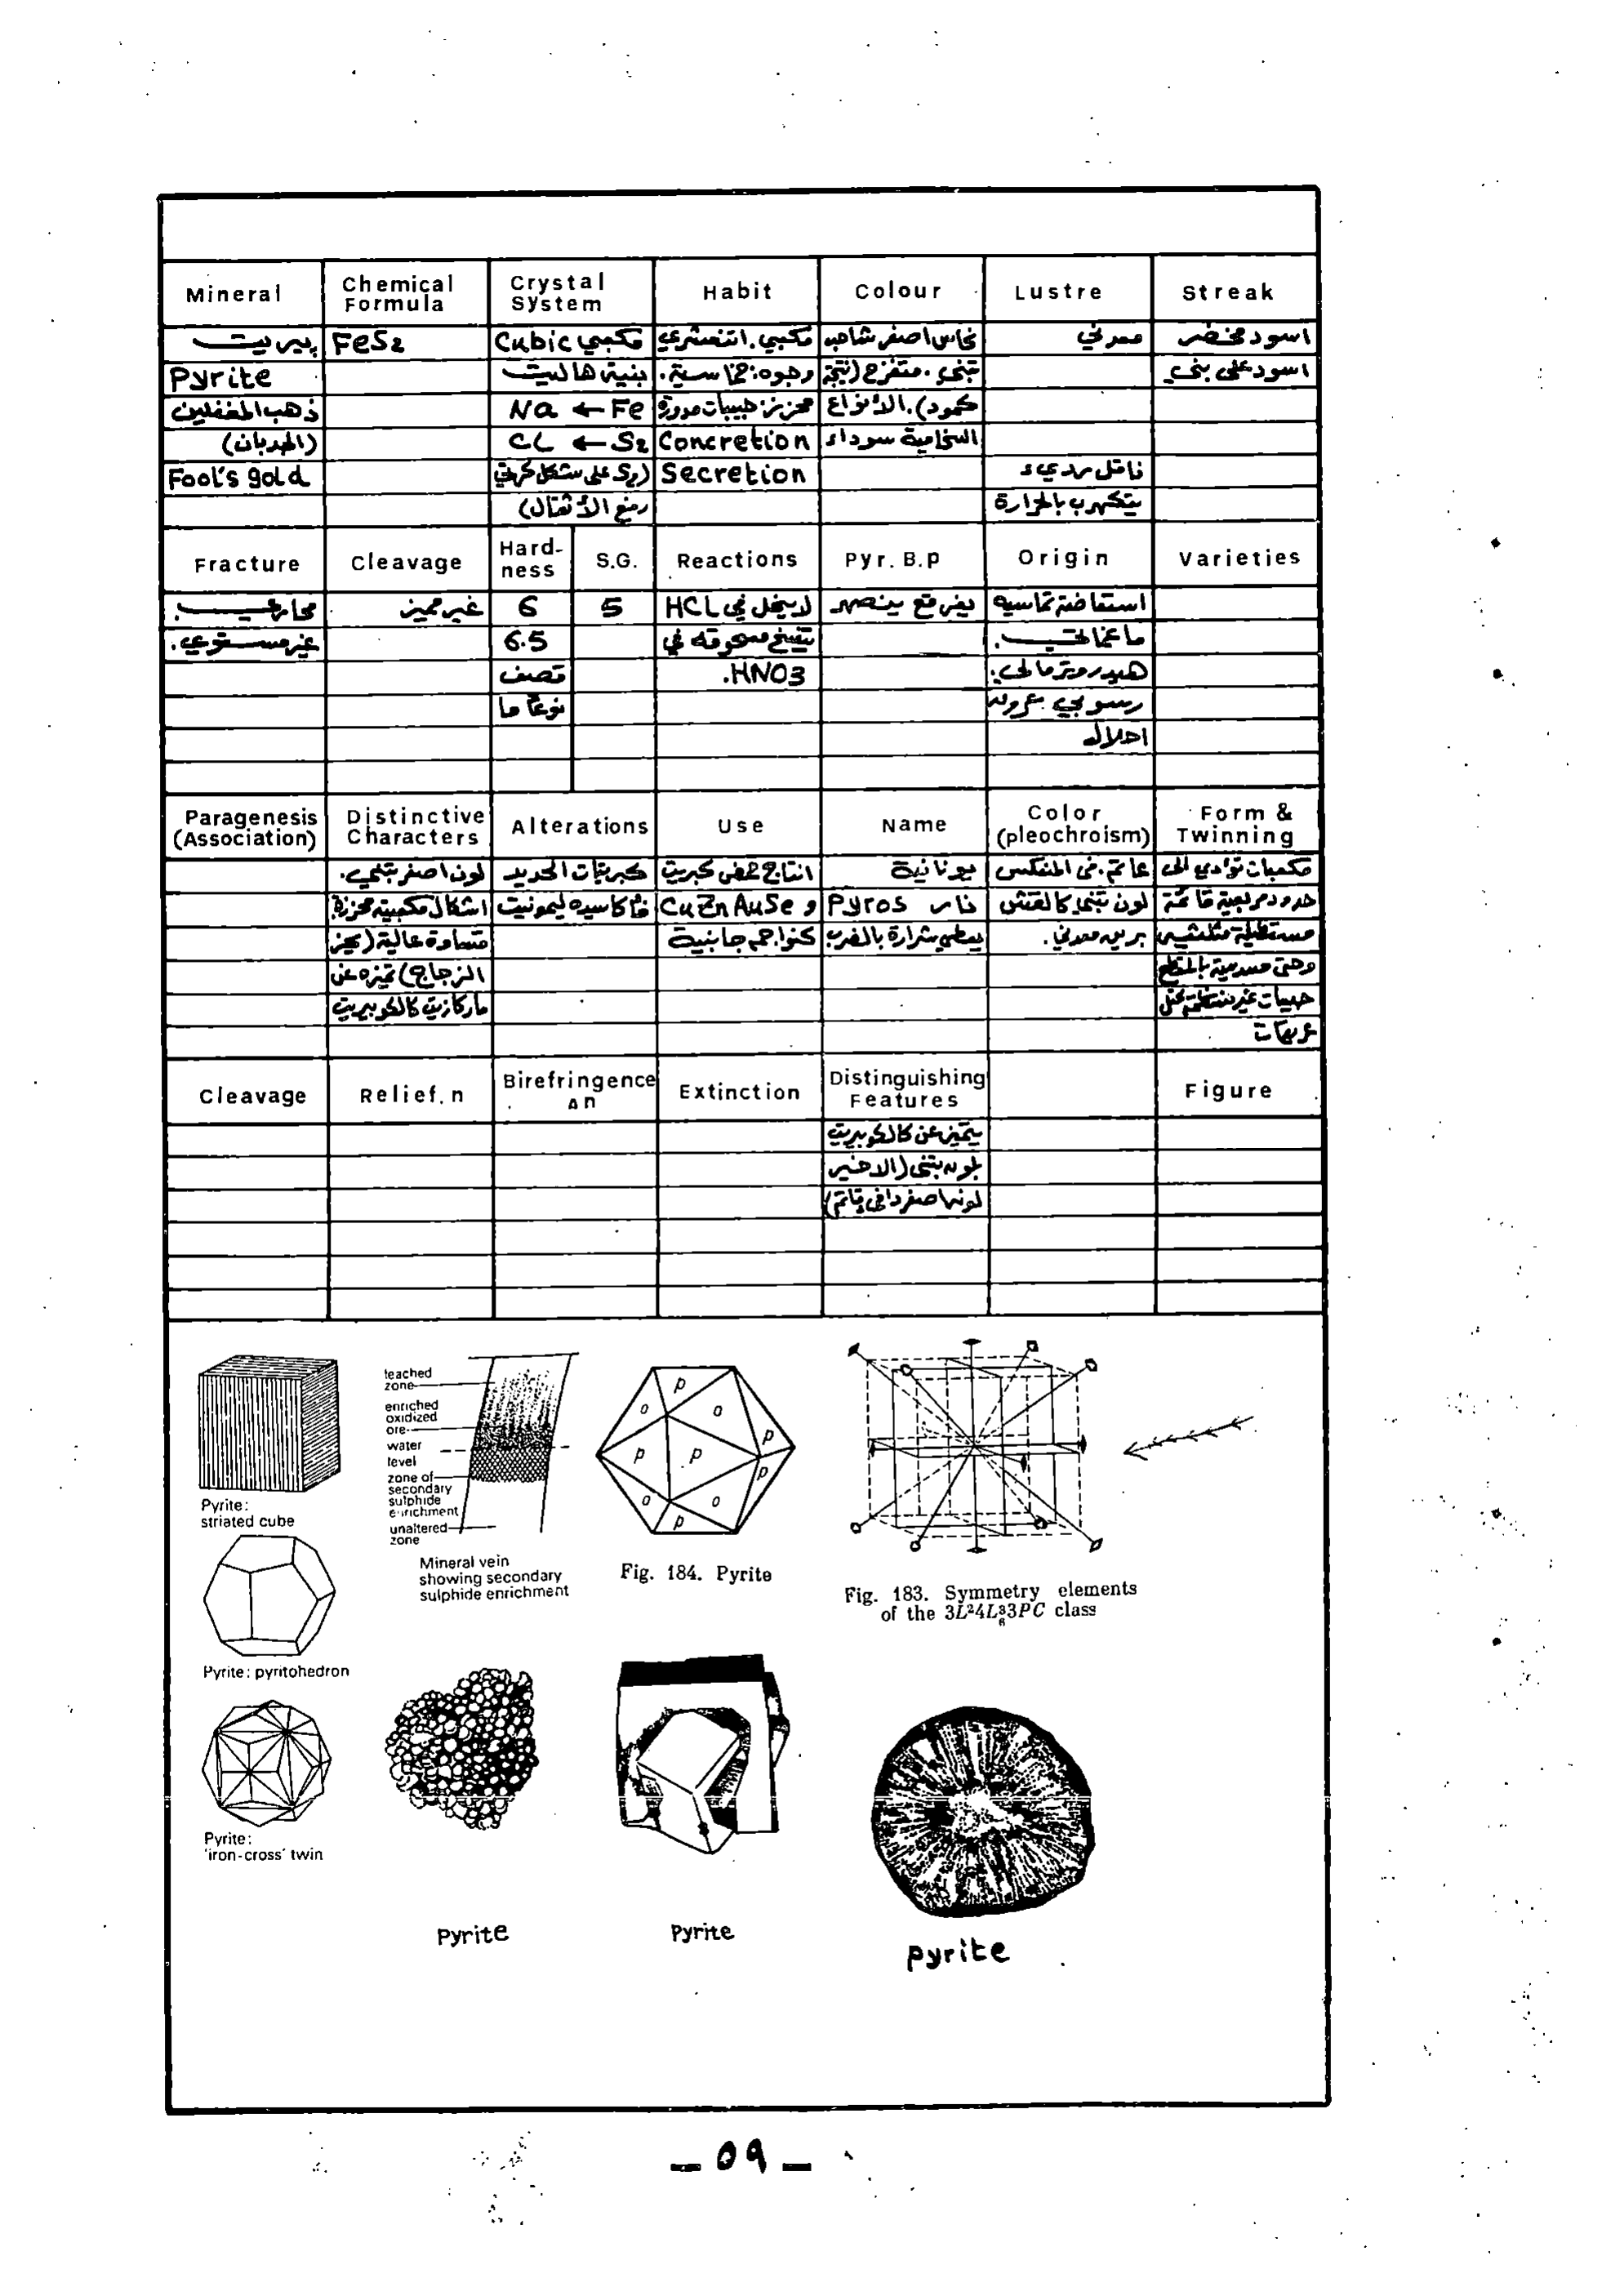 Mineral
Chemical Formula
Crystal System
Habit
Colour
Lustre
Streak
بيريت
FeS2
Cubic مكعبي
مكعبي. اثنعشري
نحاس اصفر شاحب
معدني
اسود مخضر
Pyrite
بنية هاليت
وجوه: خماسية.
تبني. متقزح (نتيجة
اسود على بني
ذهب المغفلين
Na ← Fe
محزز: حبيبات مدورة
كمود). الأنواع
(المجربان)
CL ← S2
Concretion
السخامية سوداء
Fool's gold
على شكل كرتي
Secretion
ناقل رديء
رفع الأثقال)
يتكهرب بالحرارة
Fracture
Cleavage
Hard-ness
S.G.
Reactions
Pyr. B.p
Origin
Varieties
محاري.
غير مميز
6
5
لا ينحل في HCL
يفرقع ينصهر
غير مستوي.
6.5
مسحوقه في
ماغماتي.
قصف
HNO3.
هيدروترمالي.
نوعا ما
رسوبي
احلال
Paragenesis (Association)
Distinctive Characters
Alterations
Use
Name
Color (pleochroism)
Form & Twinning
لون اصفر تبني.
كبريتات الحديد
انتاج حمض كبريت
يونانية
عاتم. في المنعكس
مكعبات تؤدي الى
اشكال مكعبية محززة
ليمونيت
و CuZnAuSe
نار Pyros
لون تبني كالقش
حدود مربعية قائمة
قساوة عالية (يحز
جانبية
يعطي شرارة بالضرب
بريق معدني.
مستطيلة مثلثية
الزجاج) تميزه عن
وحتى سدسية بالمقطع
ماركازيت كالكوبيريت
حبيبات غير منتظمة
Cleavage
Relief. n
Birefringence Δn
Extinction
Distinguishing Features
Figure
يتميز عن كالكوبيريت
بلونه تبني (الاخير
لونها اصفر داني قاتم)
Pyrite:
striated cube
Pyrite: pyritohedron
Pyrite:
'iron-cross' twin
leached
zone
enriched
oxidized
ore
water
level
zone of
secondary
sulphide
enrichment
unaltered
zone
Mineral vein
showing secondary
sulphide enrichment
p
o
o
p
p
p
p
o
o
p
Fig. 184. Pyrite
Fig. 183. Symmetry elements
of the 3L²4L₆³3PC class
Pyrite
Pyrite
pyrite
– ٥٩ –